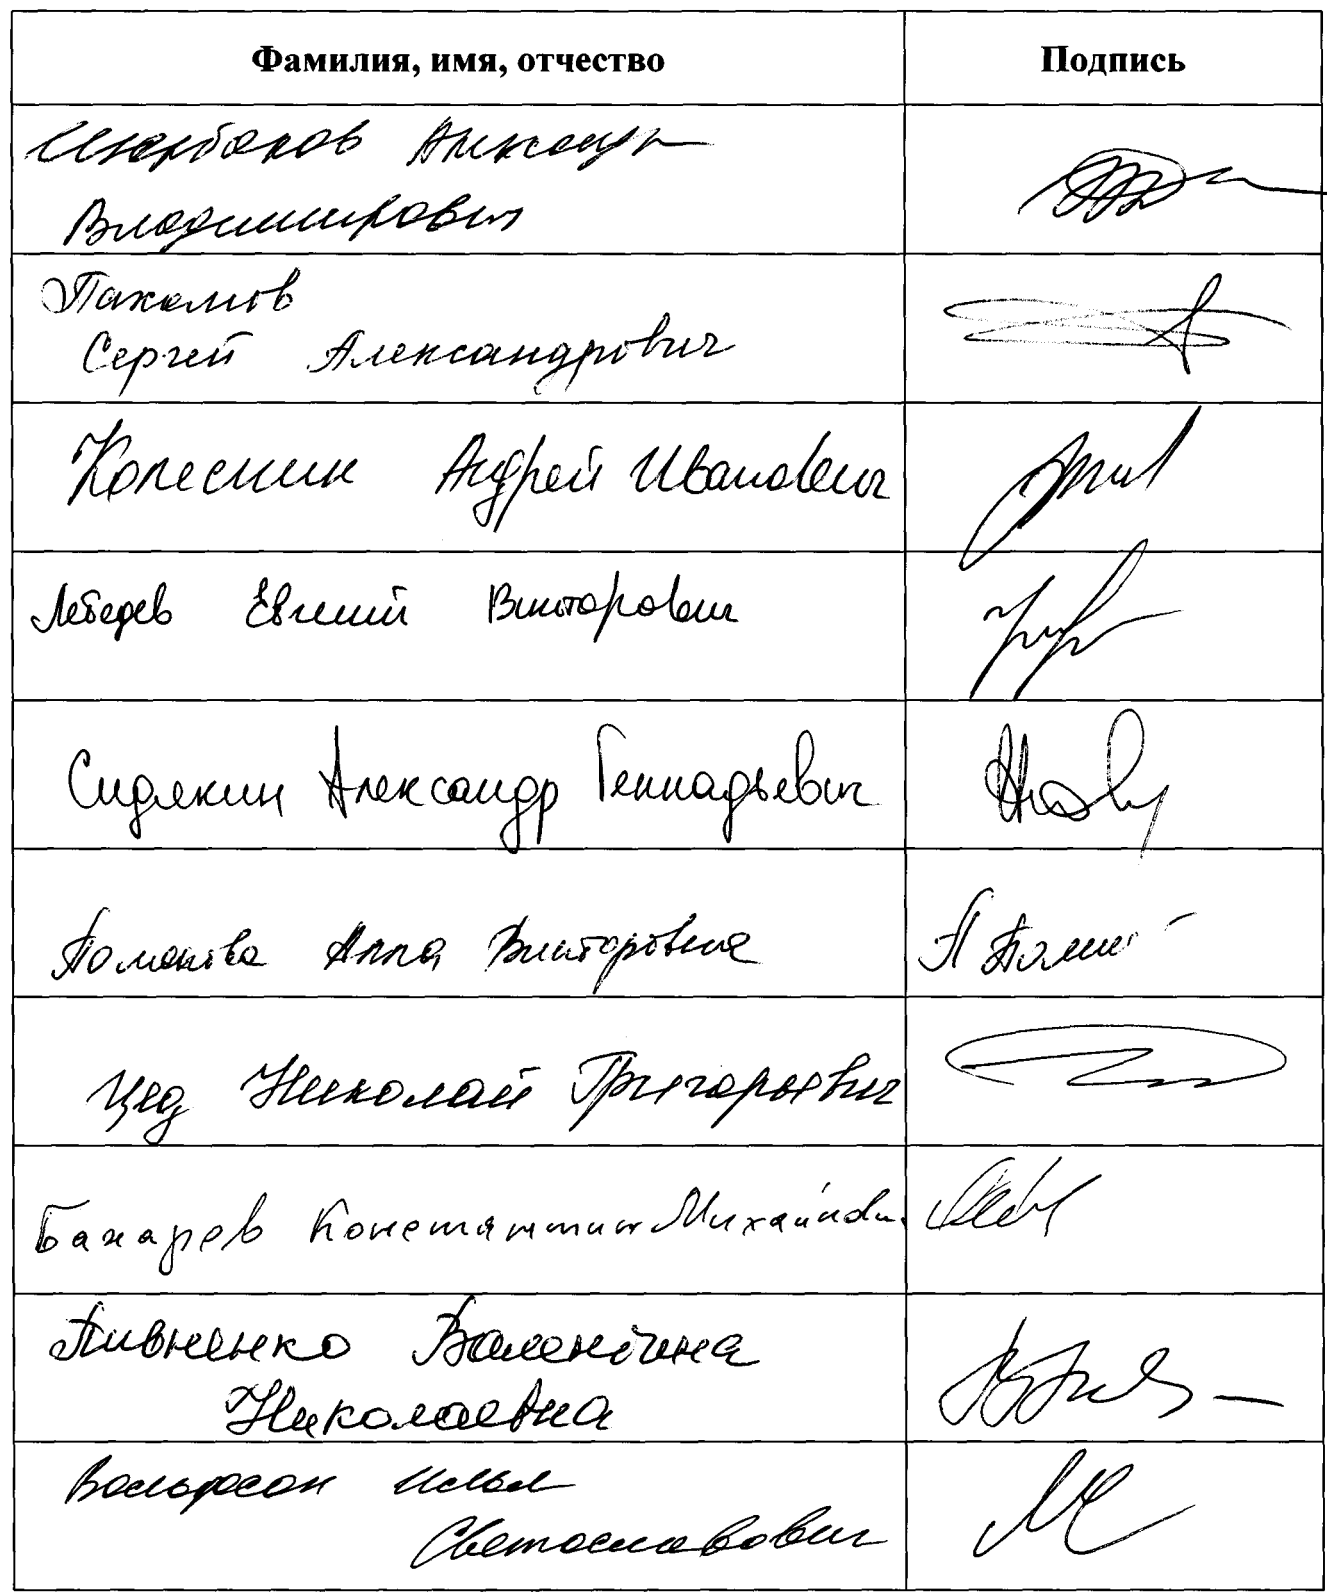 Фамилия, имя, отчество Подпись
Щербаков Александр
Владимирович
Пахомов
Сергей Александрович
Колесник Андрей Иванович
Лебедев Евгений Викторович
Сидякин Александр Геннадьевич
Виктория Анна Викторовна
Цед Николай Григорьевич
Бахарев Константин Михайлович
Пивненко Валентина
Николаевна
Вольфсон Илья
Светославович